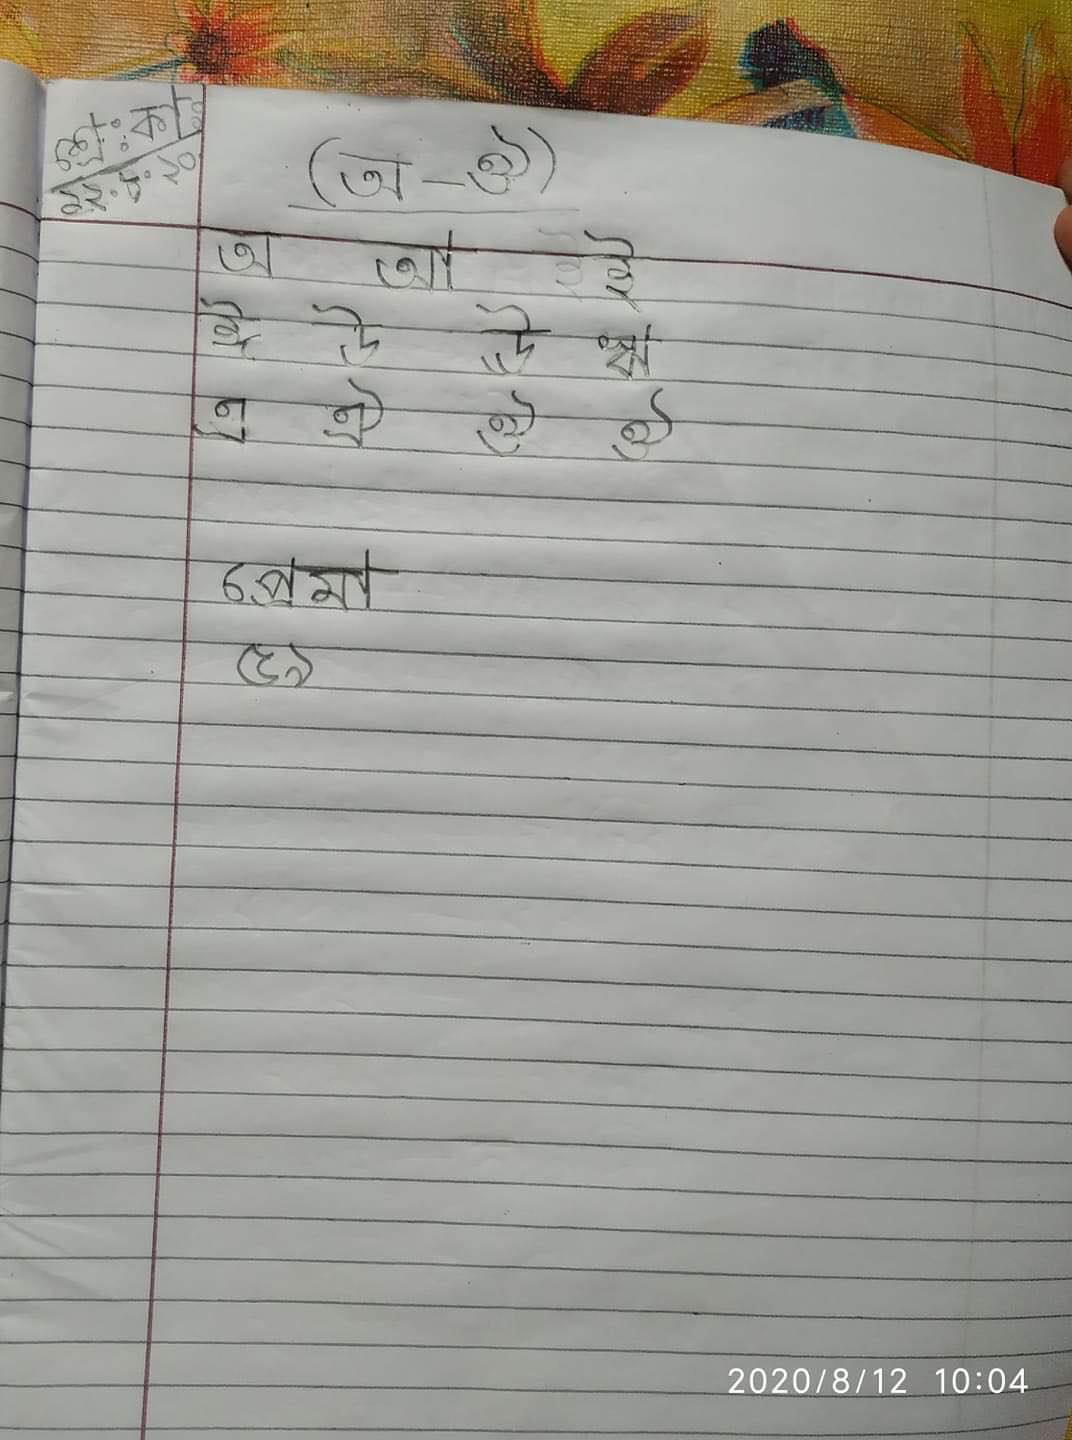 শ্রে: কা:
১২.৮.২০
(অ - ঔ)
অ আ ই
ঈ উ ঊ ঋ
এ ঐ ও ঔ
প্রেমা
৫৯
2020/8/12 10:04